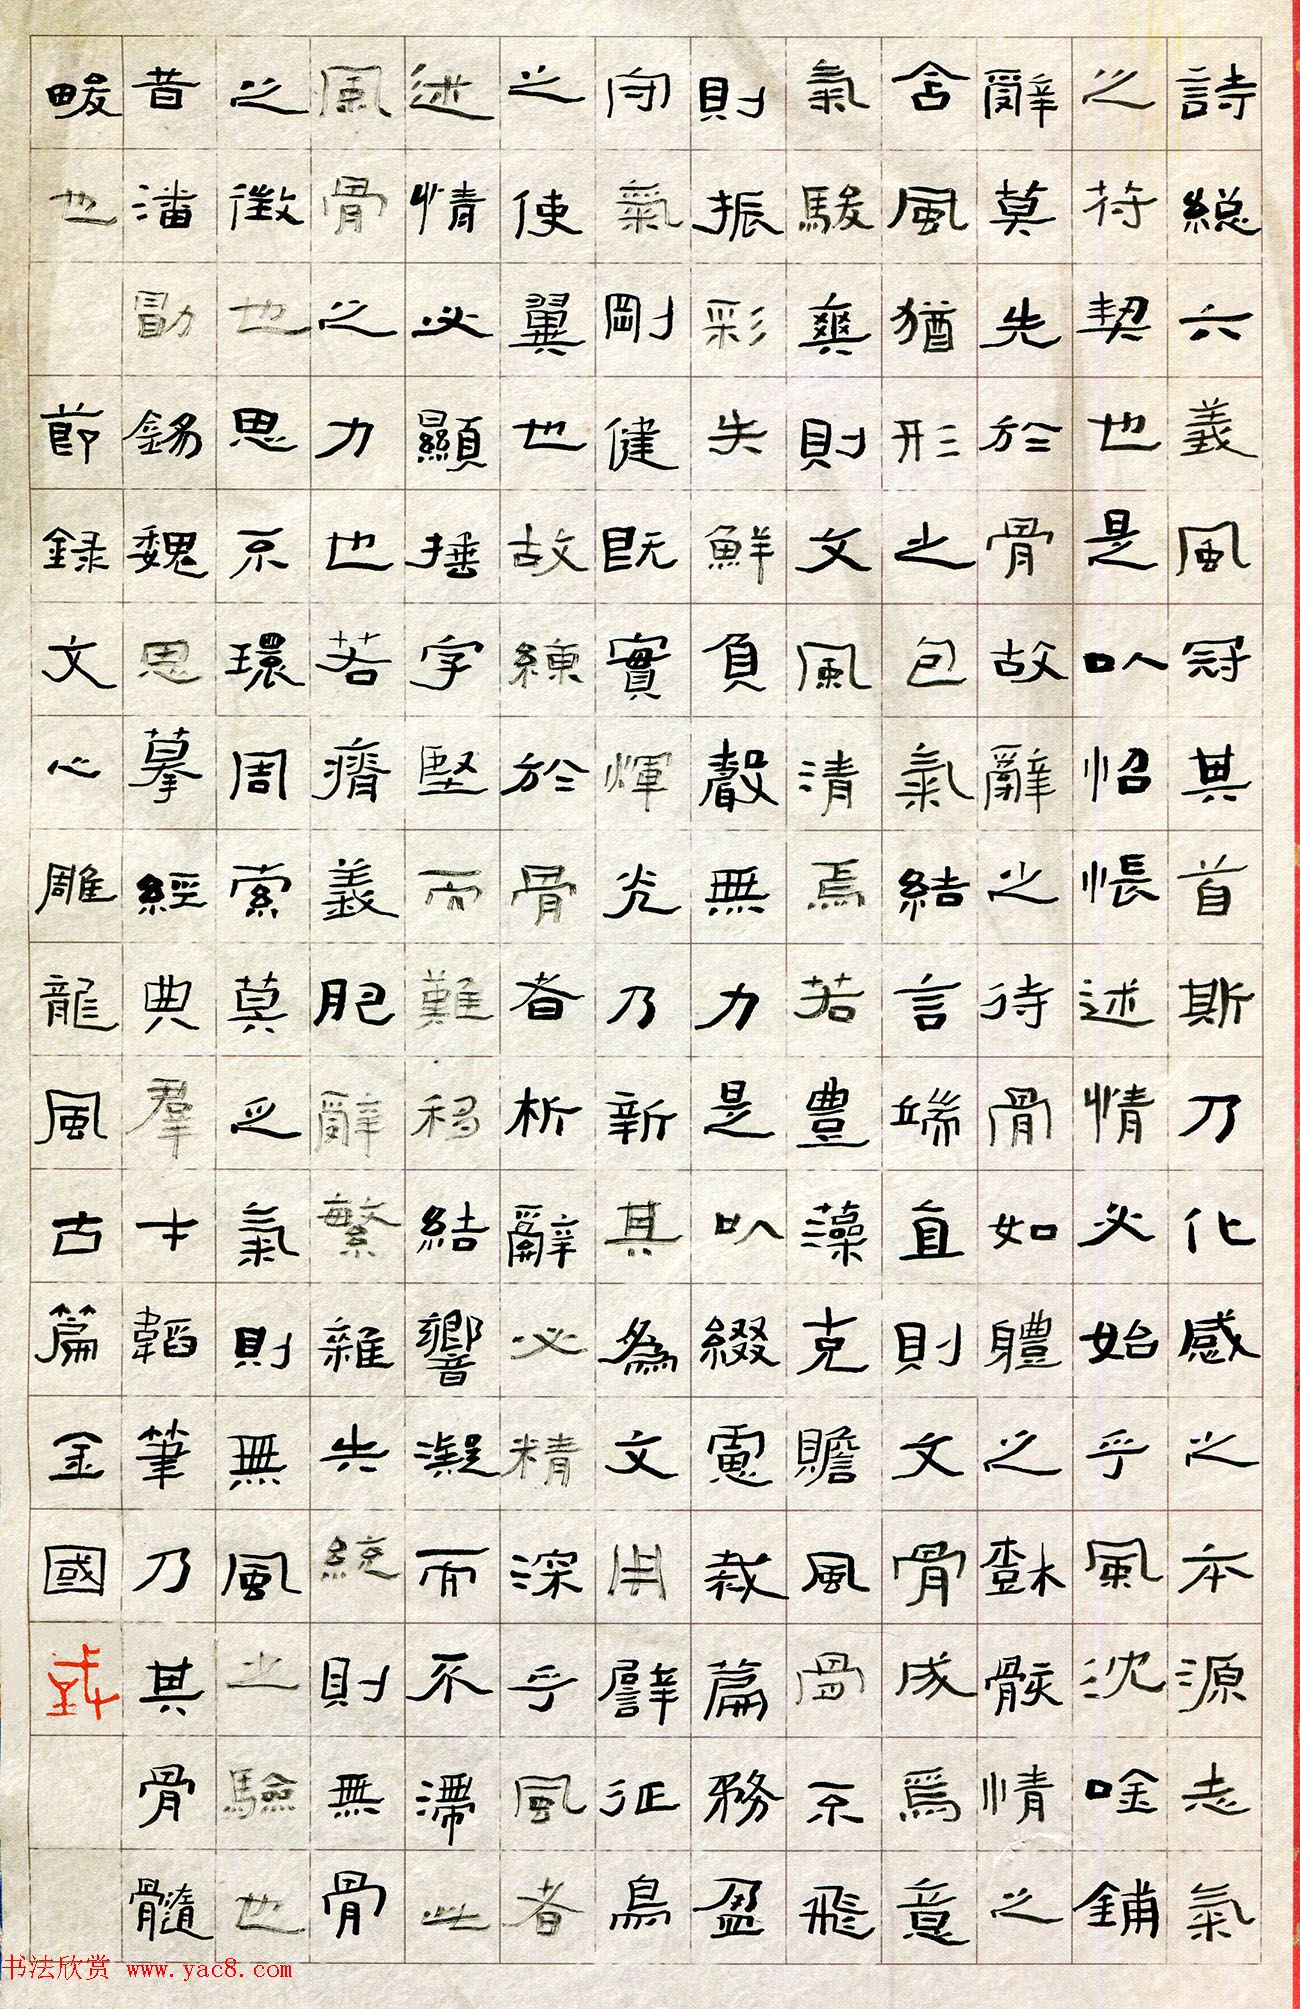 詩總六義風冠其首斯乃化感之本源志氣
之符契也是以怊悵述情必始乎風沈唫鋪
辭莫先於骨故辭之待骨如體之樹骸情之
含風猶形之包氣結言端直則文骨成焉意
氣駿爽則文風清焉若豐藻克贍風骨不飛
則振彩失鮮負聲無力是以綴慮裁篇務盈
守氣剛健既實輝光乃新其為文用譬征鳥
之使翼也故練於骨者析辭必精深乎風者
述情必顯捶字堅而難移結響凝而不滯此
風骨之力也若瘠義肥辭繁雜失統則無骨
之徵也思不環周索莫乏氣則無風之驗也
昔潘勖錫魏思摹經典羣才韜筆乃其骨髓
畯也 節録文心雕龍風古篇金國
书法欣赏 www.yac8.com